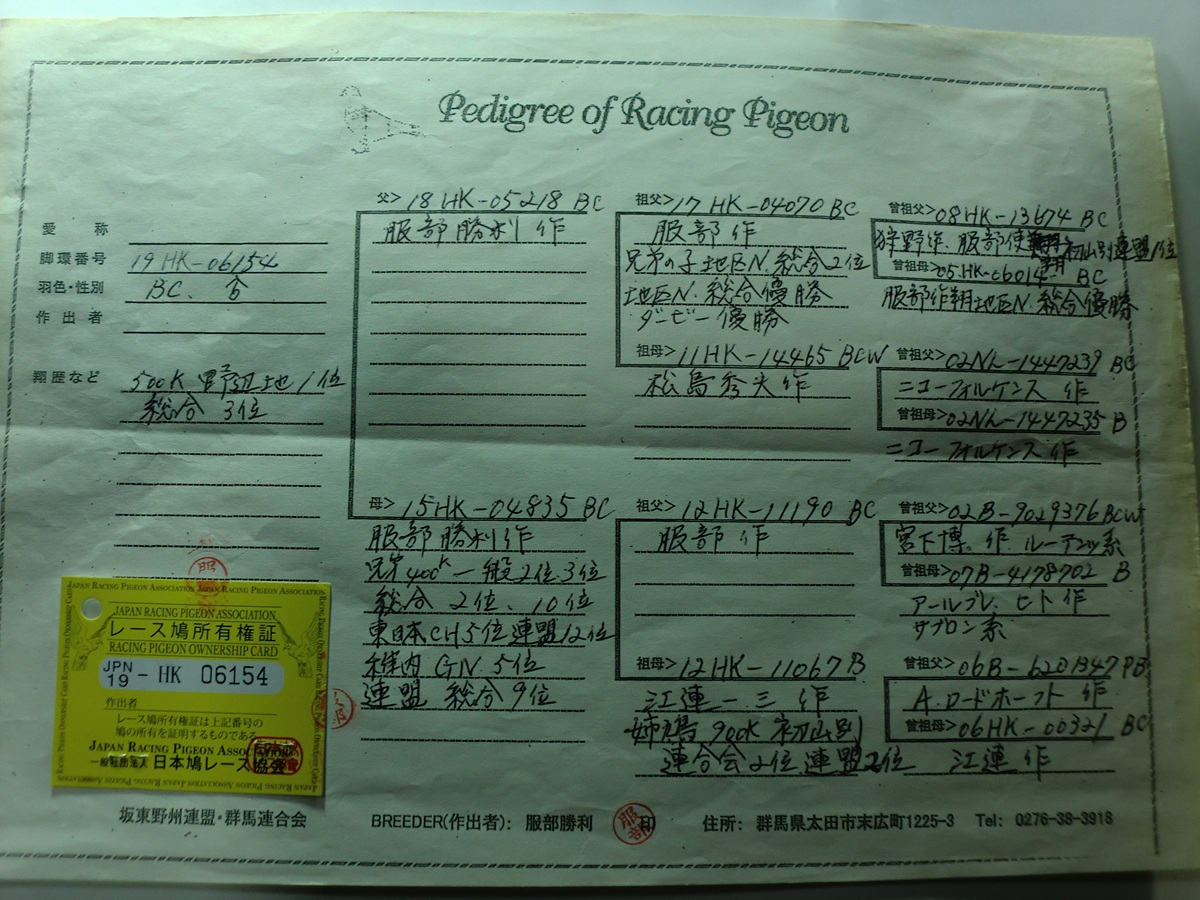 Pedigree of Racing Pigeon
愛 称
脚環番号 19 HK-06154
羽色・性別 BC. 合
作出者
翔歴など 500K 野辺地 1位
総合 3位
父> 18 HK-05218 BC
服部勝利 作
母> 15HK-04835 BC
服部勝利作
兄弟400K一般2位3位
総合 2位、10位
東日本CH5位連盟12位
稚内GN 5位
連盟 総合9位
祖父> 17 HK-04070 BC
服部作
兄弟の子地区N.総合2位
地区N.総合優勝
ダービー優勝
祖母> 11HK-14465 BCW
松島秀夫作
祖父> 12HK-11190 BC
服部 作
祖母> 12HK-11067B
江連一三 作
姉鳩 900K 初山別
連合会2位 連盟2位
曾祖父> 08HK-13674 BC
狩野作.服部使翔初山別連盟1位
曾祖母> 05.HK-06014 BC
服部作翔地区N.総合優勝
曾祖父> 02NL-1447239 BC
ニコーフォルケンス 作
曾祖母> 02NL-1447235 B
ニコーフォルケンス 作
曾祖父> 02B-9029376BCW
宮下博.作 ルーテンツ系
曾祖母> 07B-4178702 B
アールブレ.ヒト作
サブロン系
曾祖父> 06B-6201347PB
A.ロードホーフト 作
曾祖母> 06HK-00321 BC
江連 作
JAPAN RACING PIGEON ASSOCIATION
レース鳩所有権証
RACING PIGEON OWNERSHIP CARD
JPN 19 - HK 06154
作出者
レース鳩所有権証は上記番号の
鳩の所有を証明するものである
JAPAN RACING PIGEON ASSOC
一般社団法人 日本鳩レース協会
坂東野州連盟・群馬連合会
BREEDER(作出者): 服部勝利
住所: 群馬県太田市末広町1225-3 Tel: 0276-38-3918